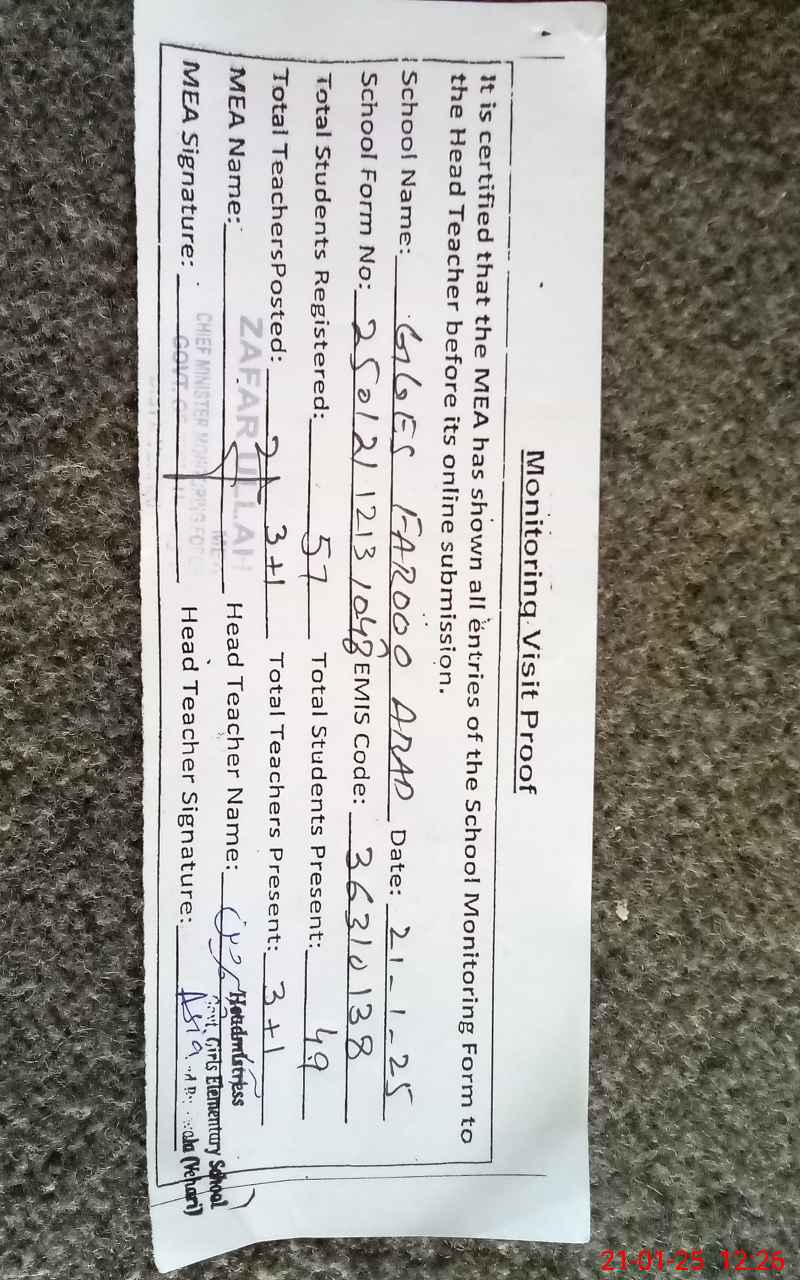 Monitoring Visit Proof
It is certified that the MEA has shown all entries of the School Monitoring Form to
the Head Teacher before its online submission.
School Name: GGES FAROOQ ABAD Date: 21-1-25
School Form No: 250121 1213 1048 EMIS Code: 36310138
Total Students Registered: 57 Total Students Present: 49
Total TeachersPosted: 3+1 Total Teachers Present: 3+1
MEA Name: ZAFAR ULLAH Head Teacher Name:
MEA
CHIEF MINISTER MONITORING FORCE
Headmistress
MEA Signature: GOVT. Head Teacher Signature: Asia
Govt. Girls Elementary School
(Vehari)
21-01-25 12:26